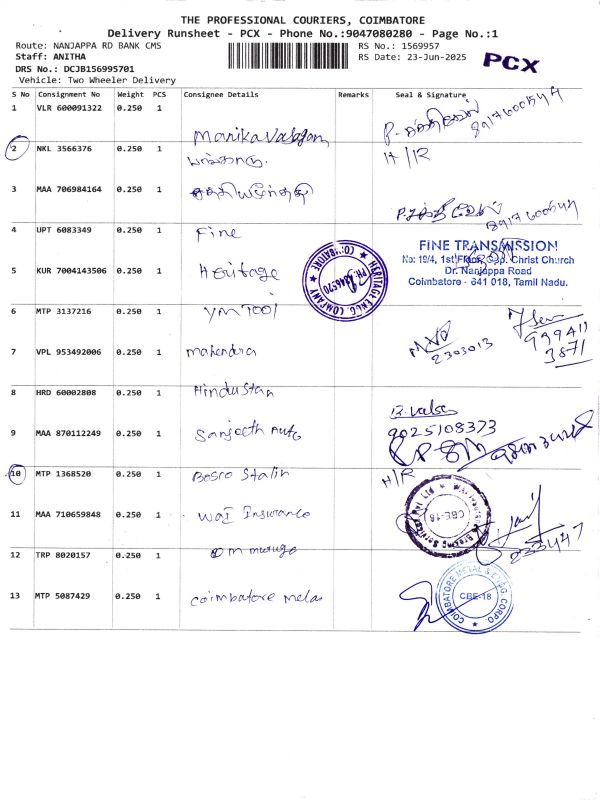 THE PROFESSIONAL COURIERS, COIMBATORE
Delivery Runsheet - PCX - Phone No.:9047080280 - Page No.:1
Route: NANJAPPA RD BANK CMS
RS No.: 1569957
Staff: ANITHA
RS Date: 23-Jun-2025
PCX
DRS No.: DCJB156995701
Vehicle: Two Wheeler Delivery
S No Consignment No Weight PCS Consignee Details Remarks Seal & Signature
1 VLR 600091322 0.250 1 Manikavasagam
2 NKL 3566376 0.250 1 H/R
3 MAA 706984164 0.250 1
4 UPT 6083349 0.250 1 Fine
FINE TRANSMISSION
No: 19/4, 1st Floor, Opp. Christ Church
Dr. Nanjappa Road
Coimbatore - 641 018, Tamil Nadu.
5 KUR 7004143506 0.250 1 Heritage
HERITAGE ENGG. COMPANY
COIMBATORE
6 MTP 3137216 0.250 1
2303013
99941
3871
7 VPL 953492006 0.250 1 mahendra
8 HRD 60002808 0.250 1 Hindustan
9 MAA 870112249 0.250 1 Sanjeeth Auto
9025108373
10 MTP 1368520 0.250 1 Bosco Stalin H/R
11 MAA 710659848 0.250 1 WAI Insurance
CBE-18
233447
12 TRP 8020157 0.250 1
13 MTP 5087429 0.250 1 Coimbatore Metal
COIMBATORE METAL & ENGG. CORPO.
CBE-18